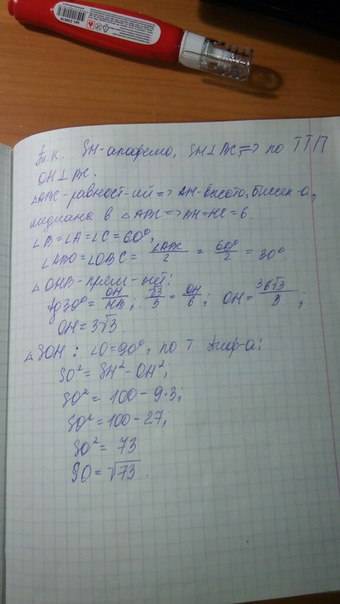 Т.к. SH-апофема, SH⊥BC => по ТТП
OH⊥BC.
△ABC-равност-ий => AH-высота, биссек-а,
медиана в △ABC => BH=HC=6
∠B=∠A=∠C=60°,
∠ABO=∠OBC= ∠ABC/2 = 60°/2 = 30°
△OHB-прям-ый:
tg30°= OH/HB; √3/3 = OH/6; OH= 6√3/3;
OH=3√3.
△SOH: ∠O=90°, по Т Пифа-а:
SO²=SH²-OH²,
SO²=100-9·3;
SO²=100-27,
SO²=73
SO=√73.